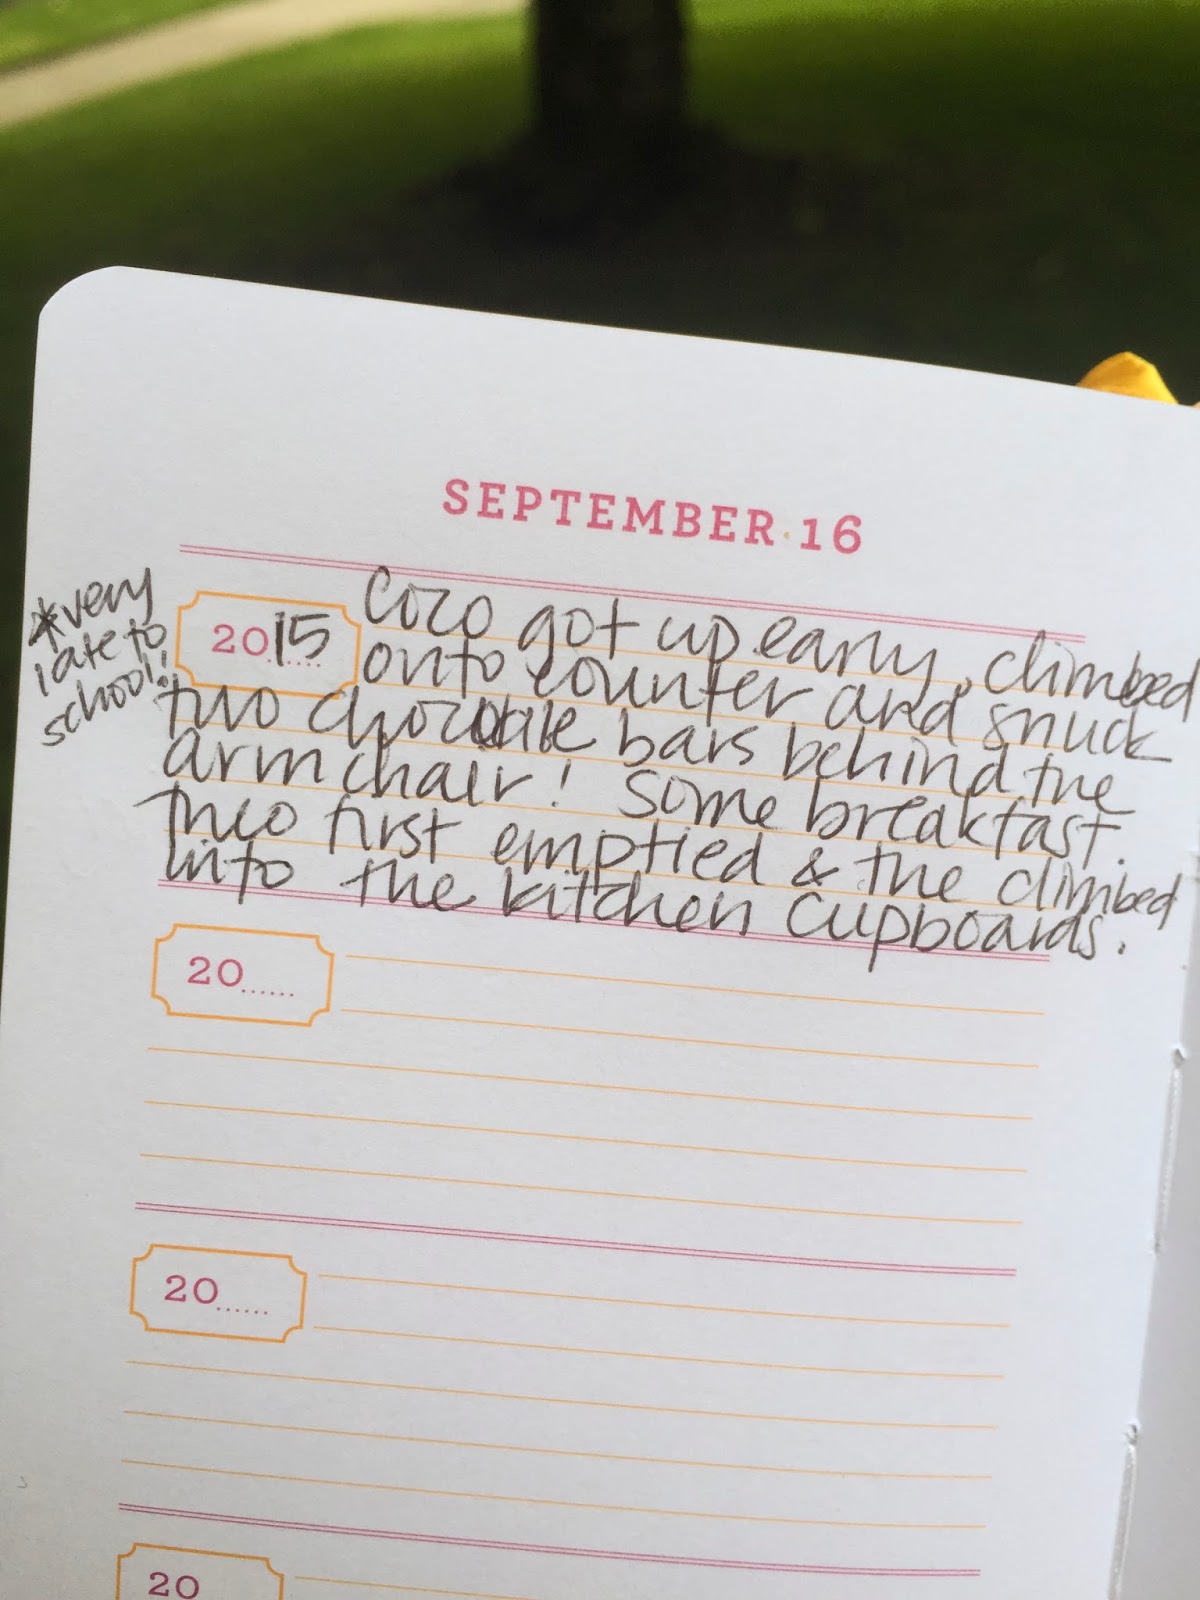 SEPTEMBER·16
*very
late to
school!
2015
Coco got up early, climbed
onto counter and snuck
two chocolate bars behind the
armchair! Some breakfast.
Theo first emptied & the climbed
into the kitchen cupboards.
20......
20......
20